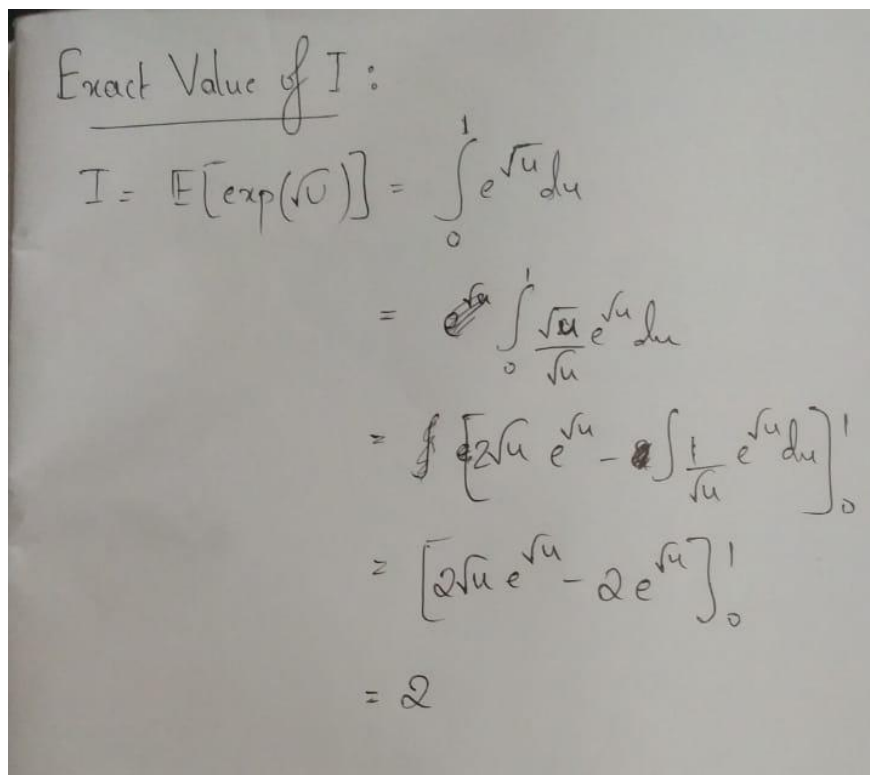 Exact Value of I :
I = 𝔼[exp(√U)] = ∫₀¹ e^√u du
= ∫₀¹ √u/√u e^√u du
= [2√u e^√u - ∫ 1/√u e^√u du]₀¹
= [2√u e^√u - 2e^√u]₀¹
= 2